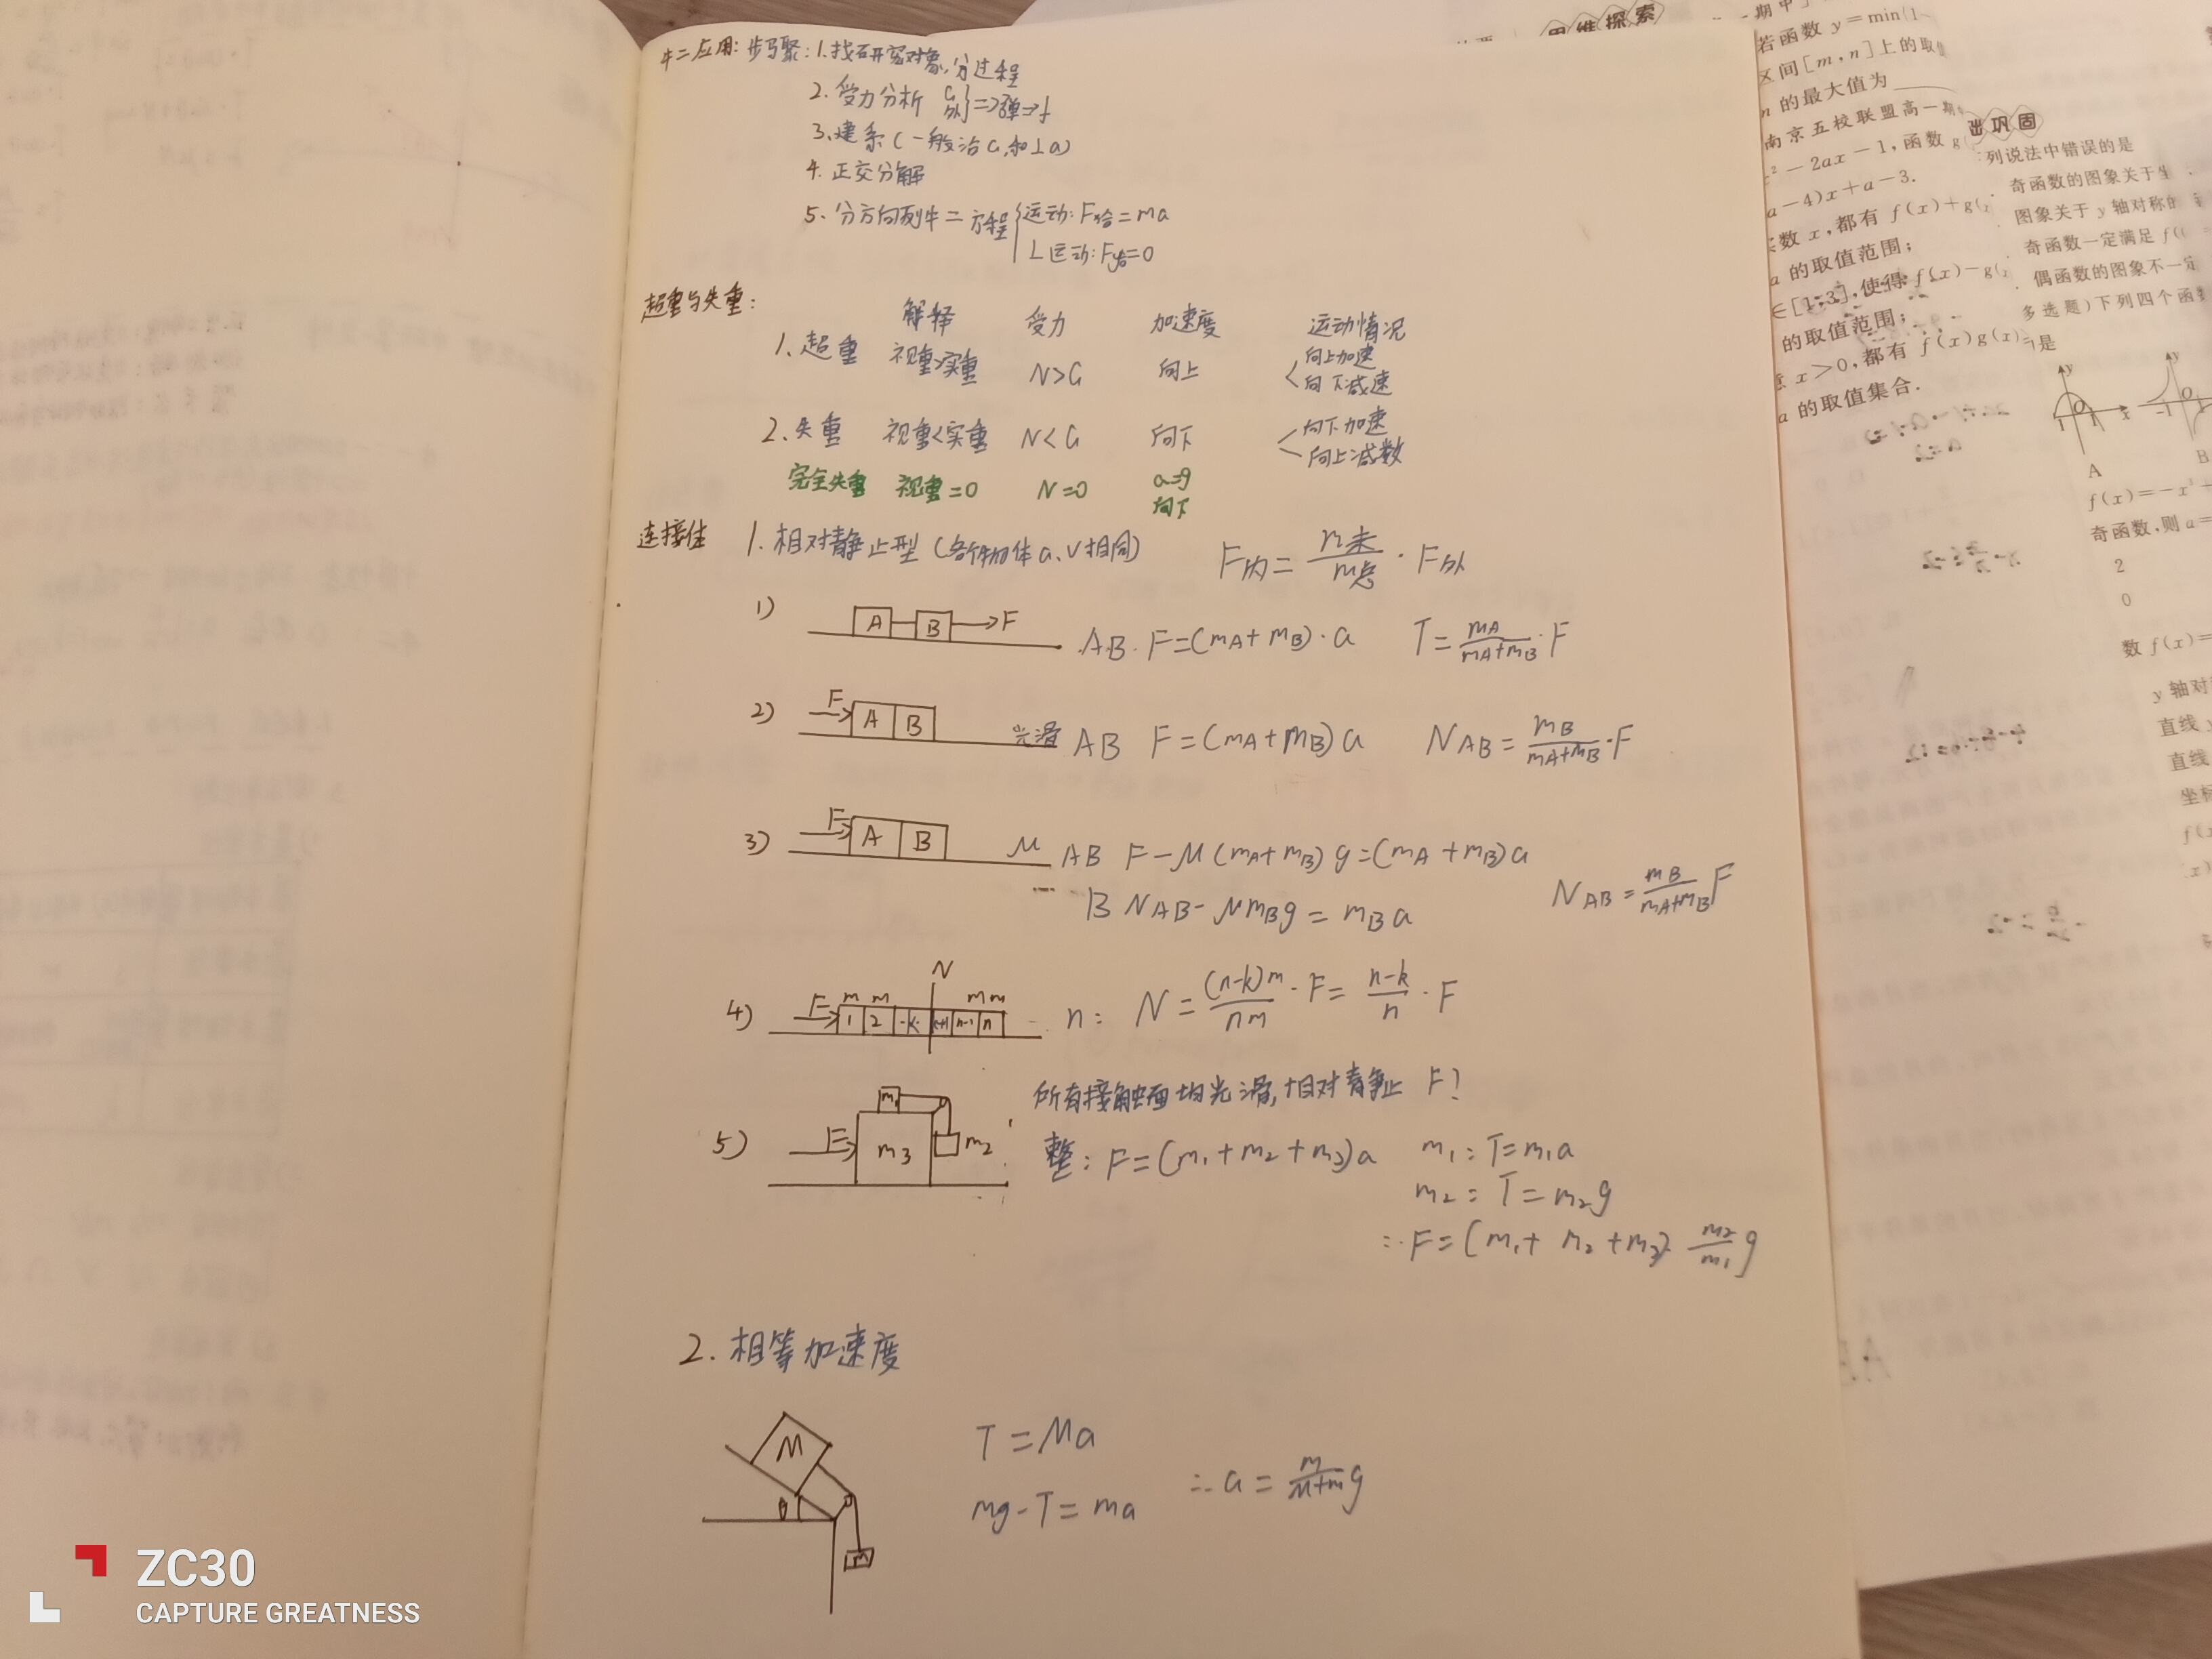 牛二应用: 步骤: 1. 找研究对象, 分过程
2. 受力分析 G 外 } => 弹 => f
3. 建系 (一般沿a, 和⊥a)
4. 正交分解
5. 分方向列牛二方程 { 运动: Fx合=ma
⊥运动: Fy合=0
超重与失重:
解释 受力 加速度 运动情况
1. 超重 视重>实重 N>G 向上 < 向上加速
向下减速
2. 失重 视重<实重 N<G 向下 < 向下加速
向上减数
完全失重 视重=0 N=0 a=g
向下
连接体 1. 相对静止型 (各个物体a、v相同) F内 = m未/m总 · F外
1) A B →F AB. F=(mA+mB)·a T= mA/(mA+mB) ·F
2) F A B 光滑 AB F=(mA+mB)a NAB= mB/(mA+mB) ·F
3) F A B μ AB F-μ(mA+mB)g=(mA+mB)a
B NAB-μmBg=mBa NAB= mB/(mA+mB) F
N
4) F m m m m
1 2 ·k· k+1 n-1 n n: N= (n-k)m/nm · F= (n-k)/n · F
所有接触面均光滑, 相对静止 F?
5) F m1 m3 m2 整: F=(m1+m2+m3)a m1: T=m1a
m2: T=m2g
∴F=(m1+m2+m3) m2/m1 g
2. 相等加速度
M θ m
T=Ma
mg-T=ma ∴a= m/(M+m) g
思维探索
期中
若函数 y=min{1-
区间[m,n]上的取值
n 的最大值为
南京五校联盟高一期
²-2ax-1,函数 g(
a-4)x+a-3.
数 x,都有 f(x)+g(x
a 的取值范围;
∈[1,3],使得 f(x)-g(x
的取值范围;
x>0,都有 f(x)g(x)
a 的取值集合.
出巩固
列说法中错误的是
奇函数的图象关于坐
图象关于 y 轴对称的
奇函数一定满足 f(
偶函数的图象不一定
多选题)下列四个函数
是
y O 1 x
y -1 O
A
B
f(x)=-x³+
奇函数,则 a=
2
0
数 f(x)=
y 轴对
直线 y
直线
坐标
f(x
x)
ZC30
CAPTURE GREATNESS